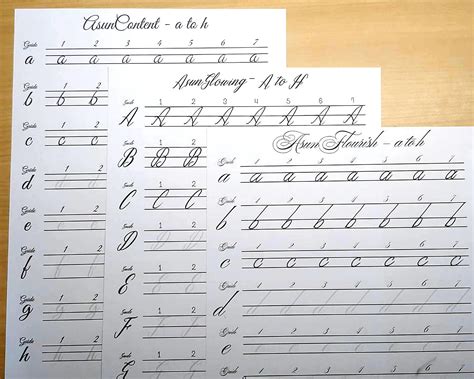 AsunContent - a to h
Guide 1 2 3 4 5 6 7
a a a a a a a a
Guide 1 2
b b b
Guide 1 2
c c c
Guide 1 2
d
Guide 1 2
e
Guide 1 2
f
Guide 1 2
g
Guide 1 2
h
AsunGlowing - A to H
Guide 1 2 3 4 5 6 7
A A A A A A A A
Guide 1 2
B B B
Guide 1 2
C C C
Guide 1 2
D
Guide 1 2
E
Guide 1 2
F
Asun Flourish - a to h
Guide 1 2 3 4 5 6 7
a a a a a a a a
Guide 1 2 3 4 5 6 7
b b b b b b b b
Guide 1 2 3 4 5 6 7
c c c c c c c c
Guide 1 2 3 4 5 6 7
d d d d d d d d
Guide 1 2 3 4 5 6 7
e